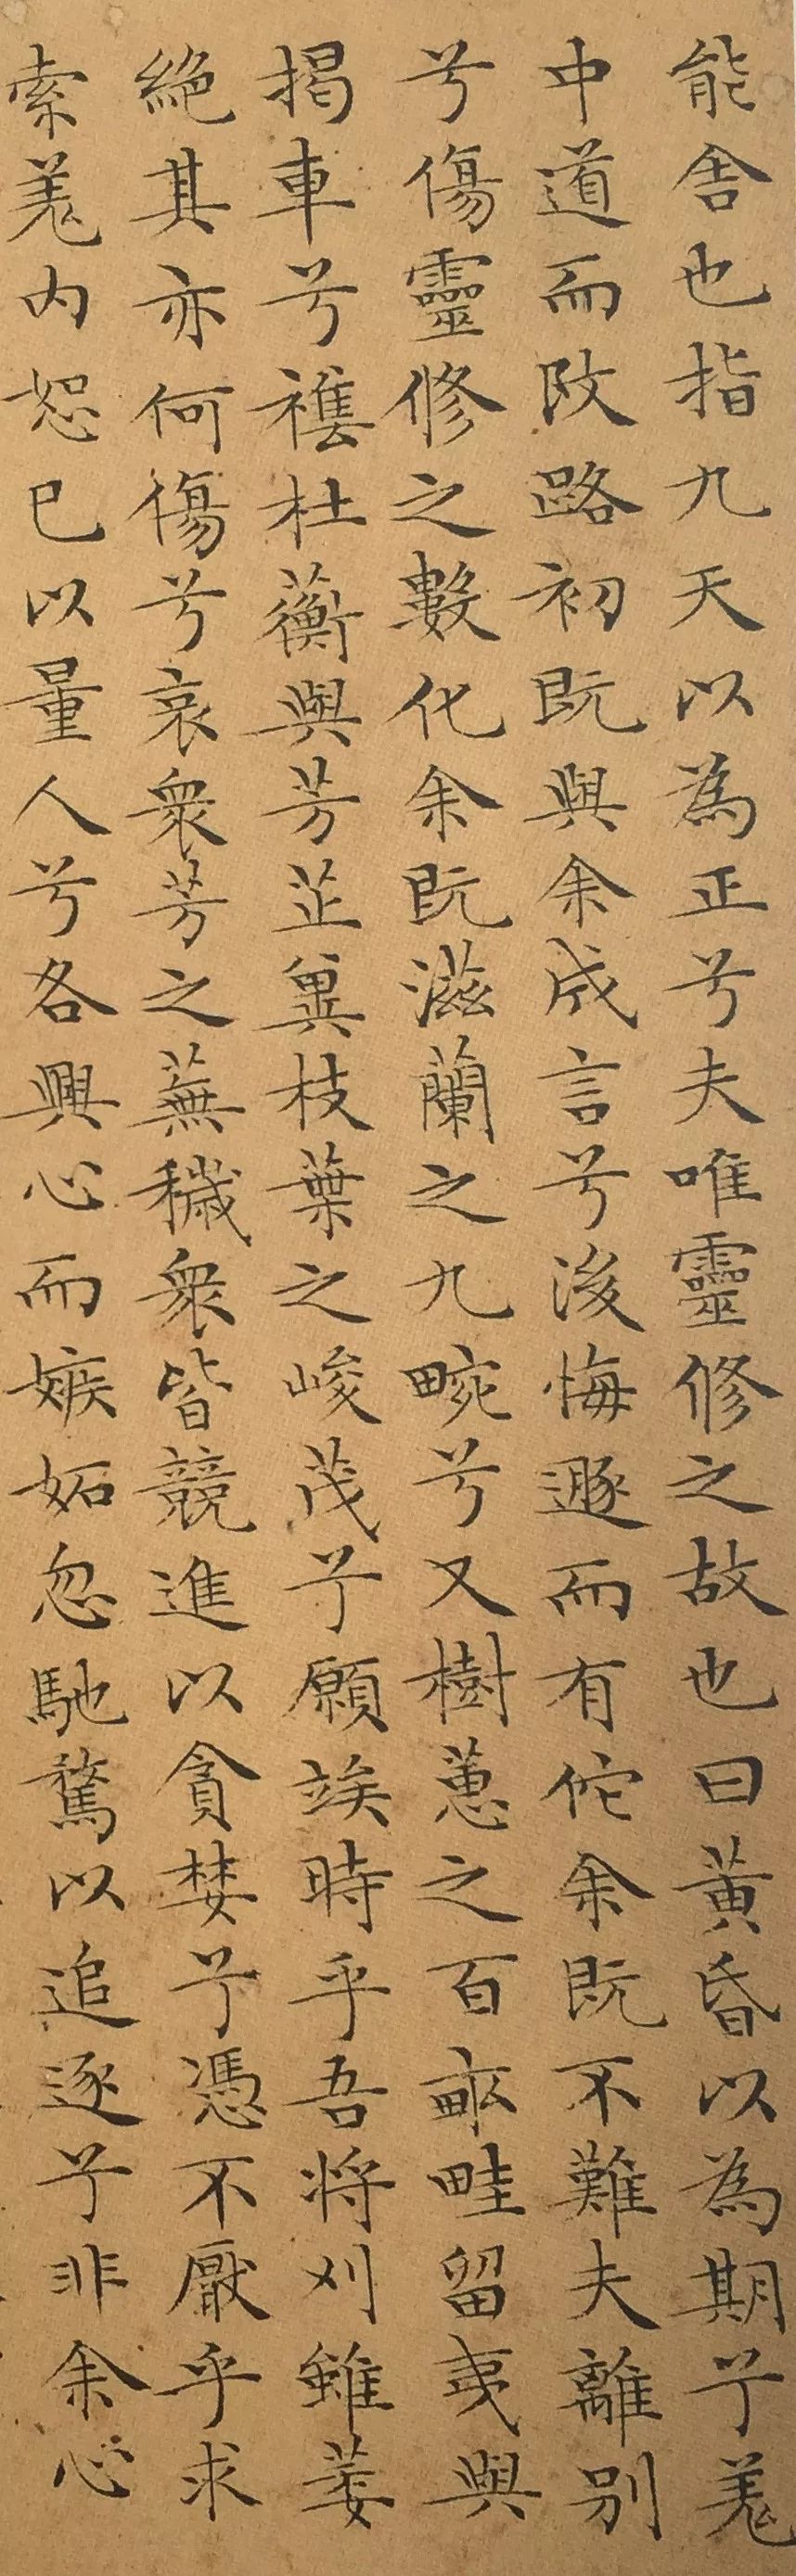 能舍也指九天以為正兮夫唯靈修之故也曰黄昏以為期兮羌
中道而改路初既與余成言兮後悔遯而有佗余既不難夫離别
兮傷靈修之數化余既滋蘭之九畹兮又樹蕙之百畝畦留夷與
揭車兮襍杜蘅與芳芷冀枝葉之峻茂兮願竢時乎吾将刈雖萎
絶其亦何傷兮哀衆芳之蕪穢衆皆競進以貪婪兮憑不厭乎求
索羌内恕己以量人兮各興心而嫉妬忽馳騖以追逐兮非余心